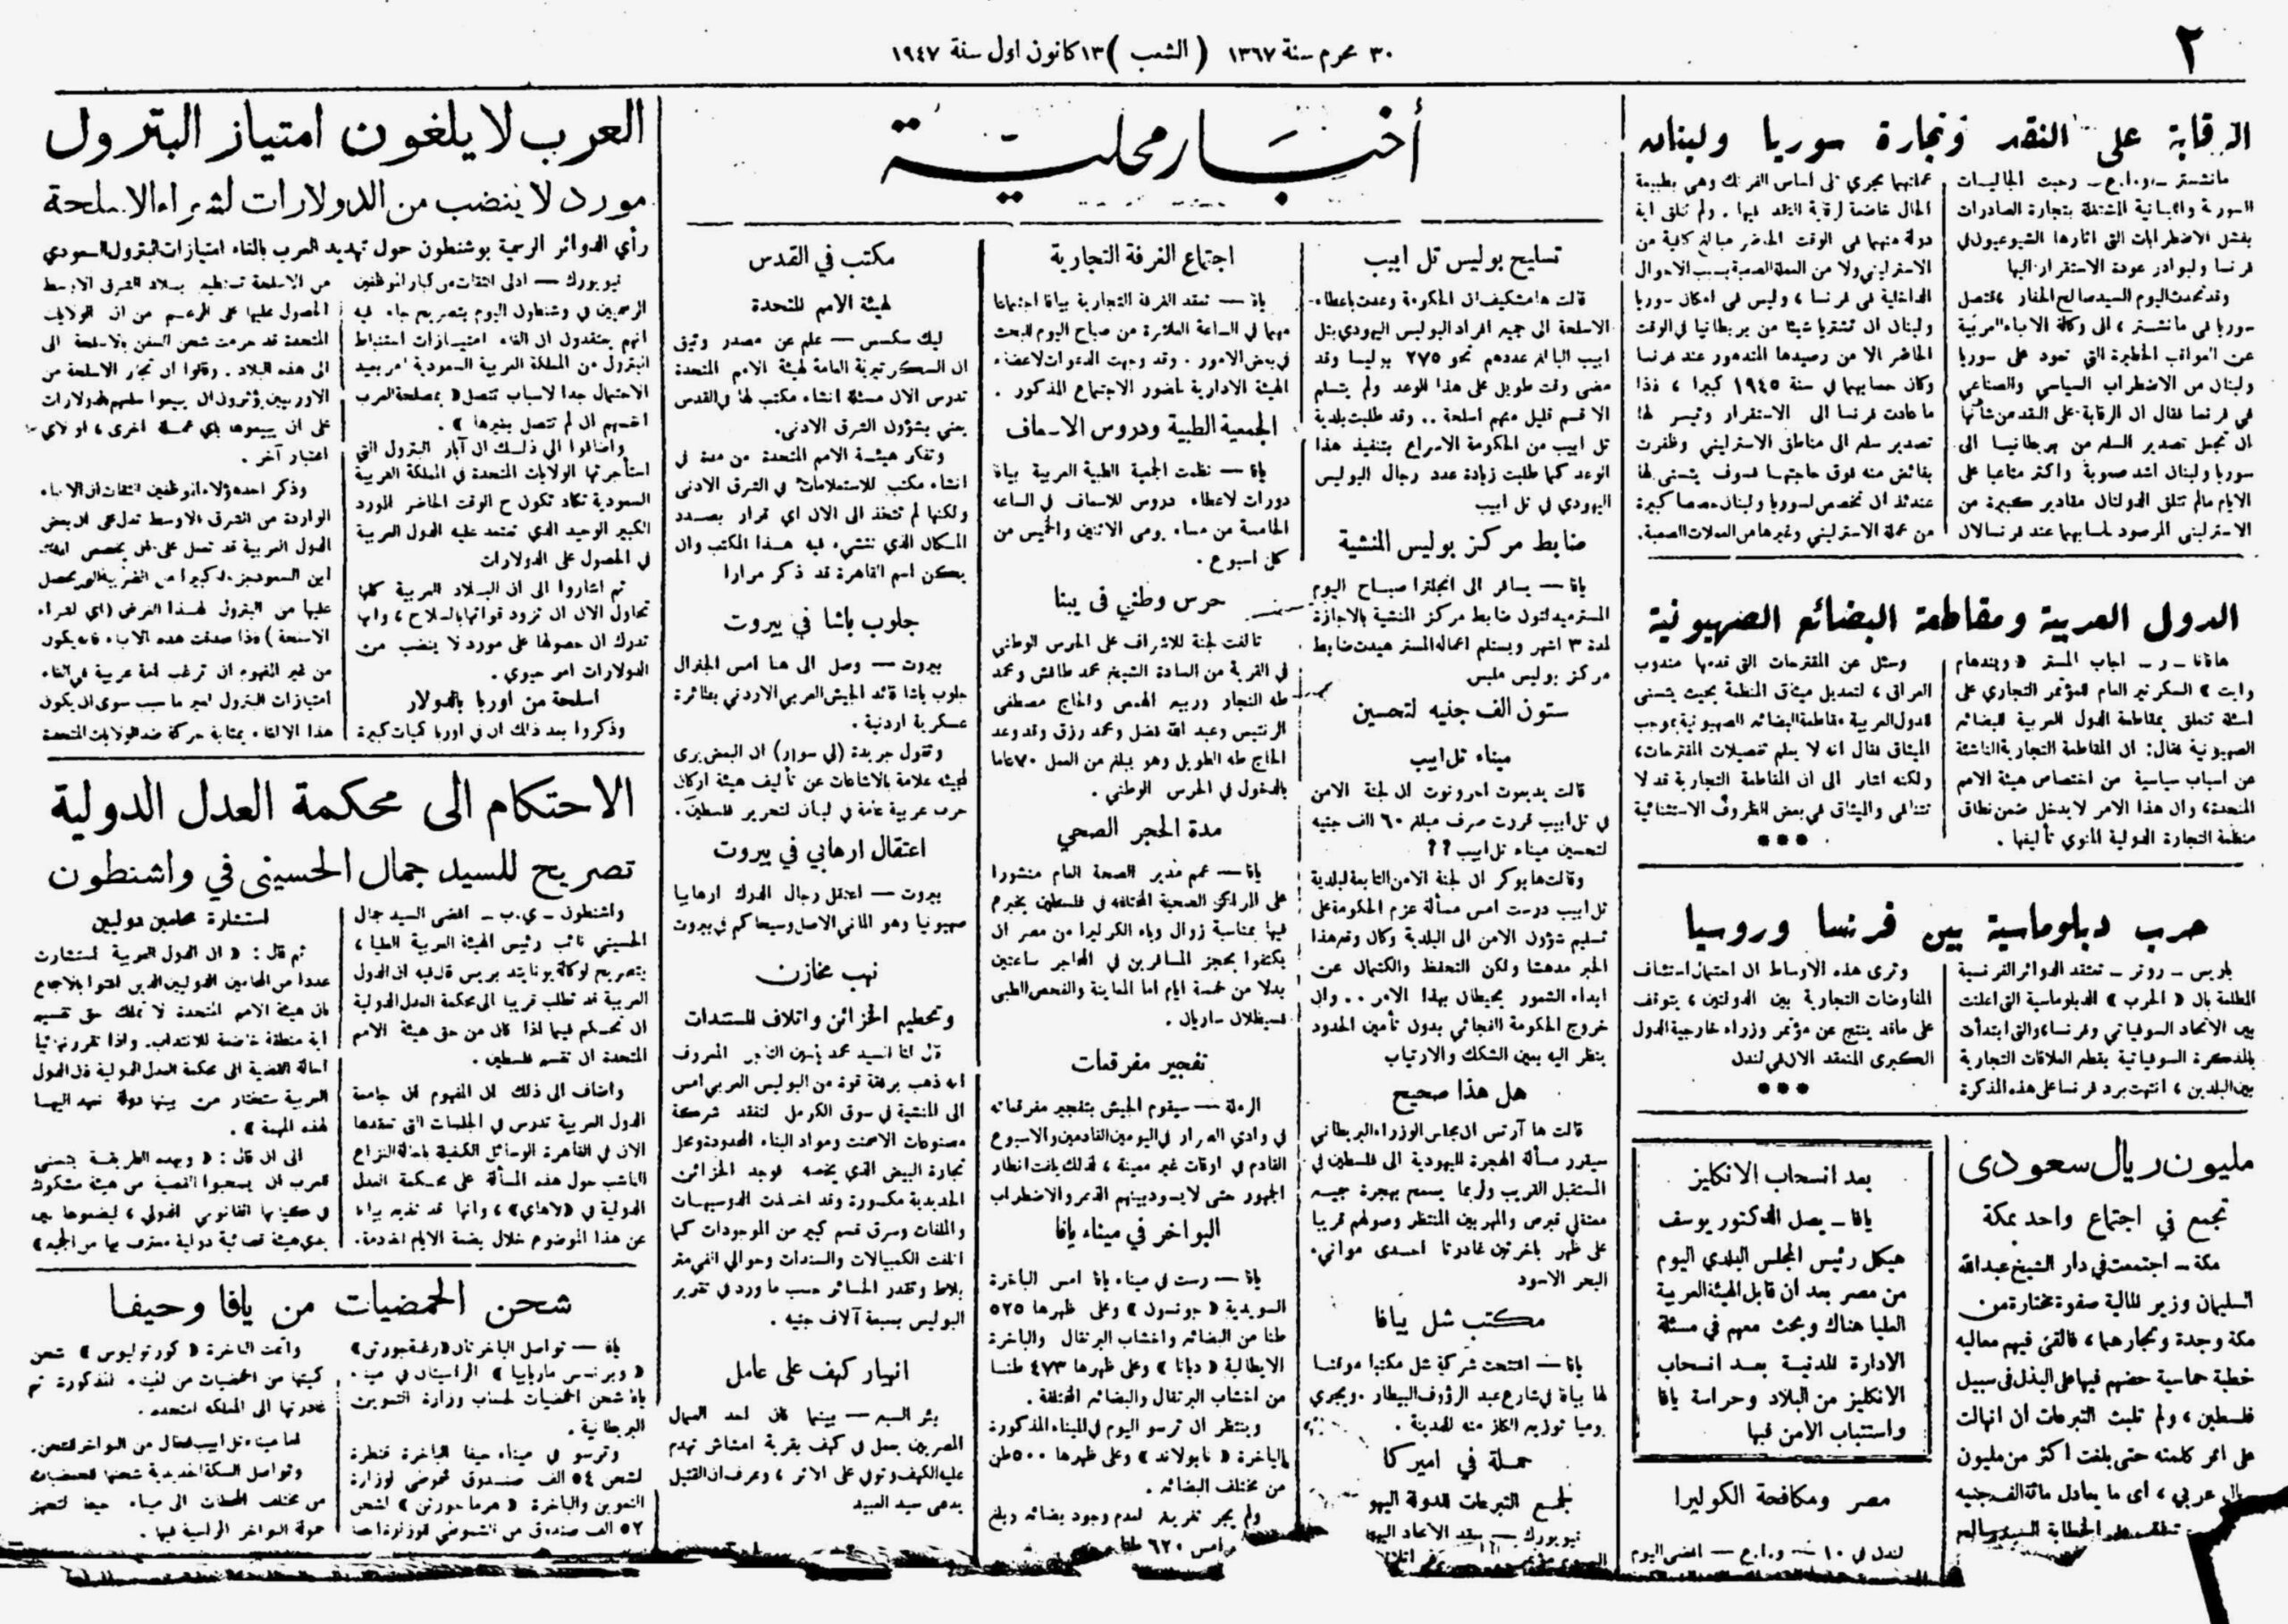 ٢
٣٠ محرم سنة ١٣٦٧ ( الشعب ) ١٣ كانون اول سنة ١٩٤٧
الرقابة على النقد وتجارة سوريا ولبنان
مانشستر - و.ا.ع - رحبت الجاليات
السورية واللبنانية المشتغلة بتجارة الصادرات
بفشل الاضطرابات التي اثارها الشيوعيون في
فرنسا ولبوادر عودة الاستقرار اليها
وقد تحدث اليوم السيد صالح الحفار ، قنصل
سوريا في مانشستر ، الى وكالة الانباء العربية
عن العواقب الخطيرة التي تعود على سوريا
ولبنان من الاضطراب السياسي والصناعي
في فرنسا فقال ان الرقابة على النقد من شأنها
ان تجعل تصدير السلع من بريطانيا الى
سوريا ولبنان اشد صعوبة واكثر متاعبا على
الايام مالم تتلق الدولتان مقادير كبيرة من
الاسترليني المرصود لحسابهما عند فرنسا لان
عملتهما تجري على اساس الفرنك وهي بطبيعة
الحال خاضعة لرقابة النقد فيها . ولم تتلق اية
دولة منهما في الوقت الحاضر مبالغ كافية من
الاسترليني ولا من العملة الصعبة بسبب الاحوال
الداخلية في فرنسا ، وليس في امكان سوريا
ولبنان ان تشتريا شيئا من بريطانيا في الوقت
الحاضر الا من رصيدها المتدهور عند فرنسا
وكان حسابهما في سنة ١٩٤٥ كبيرا ، فاذا
ما عادت فرنسا الى الاستقرار وتيسر لها
تصدير سلع الى مناطق الاسترليني وظفرت
بفائض منه فوق حاجتها فسوف يتسنى لها
عندئذ ان تخصص لسوريا ولبنان حصصا كبيرة
من عملة الاسترليني وغيرها من العملات الصعبة .
الدول العربية ومقاطعة البضائع الصهيونية
هافانا - ر - اجاب المستر « ويندهام
وايت » السكرتير العام للمؤتمر التجاري على
اسئلة تتعلق بمقاطعة الدول العربية للبضائع
الصهيونية فقال : ان المقاطعة التجارية الناشئة
عن اسباب سياسية من اختصاص هيئة الامم
المتحدة ، وان هذا الامر لا يدخل ضمن نطاق
منظمة التجارة الدولية المنوي تأليفها .
وسئل عن المقترحات التي قدمها مندوب
العراق ، لتعديل ميثاق المنظمة بحيث يتسنى
للدول العربية مقاطعة البضائع الصهيونية بموجب
الميثاق فقال انه لا يعلم تفصيلات المقترحات ،
ولكنه اشار الى ان المقاطعة التجارية قد لا
تتنافى والميثاق في بعض الظروف الاستثنائية
حرب دبلوماسية بين فرنسا وروسيا
باريس - روتر - تعتقد الدوائر الفرنسية
المطلعة بان « الحرب » الدبلوماسية التي اعلنت
بين الاتحاد السوفياتي وفرنسا ، والتي ابتدأت
بالمذكرة السوفياتية بقطع العلاقات التجارية
بين البلدين ، انتهت برد فرنسا على هذه المذكرة
وترى هذه الاوساط ان احتمال استئناف
المفاوضات التجارية بين الدولتين ، يتوقف
على ماقد ينتج عن مؤتمر وزراء خارجية الدول
الكبرى المنعقد الان في لندن
مليون ريال سعودى
تجمع في اجتماع واحد بمكة
مكة - اجتمعت في دار الشيخ عبدالله
السليمان وزير المالية صفوة مختارة من
مكة وجدة وتجارهما ، فالقى فيهم معاليه
خطبة حماسية حضهم فيها على البذل في سبيل
فلسطين ، ولم تلبث التبرعات ان انهالت
على اثر كلمته حتى بلغت أكثر من مليون
ريال عربي ، أى ما يعادل مائة الف جنيه
بعد انسحاب الانكليز
يافا - يصل الدكتور يوسف
هيكل رئيس المجلس البلدي اليوم
من مصر بعد أن قابل الهيئة العربية
العليا هناك وبحث معهم في مسئلة
الادارة المدنية بعد انسحاب
الانكليز من البلاد وحراسة يافا
واستتباب الأمن فيها
مصر ومكافحة الكوليرا
لندن في ١٠ - و.ا.ع - افضى اليوم
أخبار محلية
تسليح بوليس تل ابيب
قالت هامشكيف ان الحكومة وعدت باعطاء
الاسلحة الى جميع افراد البوليس اليهودي بتل
ابيب البالغ عددهم نحو ٢٧٥ بوليسا وقد
مضى وقت طويل على هذا الوعد ولم يتسلم
الا قسم قليل منهم اسلحة .. وقد طلبت بلدية
تل ابيب من الحكومة الاسراع بتنفيذ هذا
الوعد كما طلبت زيادة عدد رجال البوليس
اليهودي في تل ابيب
ضابط مركز بوليس المنشية
يافا — يسافر الى انجلترا صباح اليوم
المستر ميدلتون ضابط مركز المنشية بالاجازة
لمدة ٣ اشهر ويستلم اعماله المستر هيدت ضابط
مركز بوليس ملبس
ستون الف جنيه لتحسين
ميناء تل ابيب
قالت يديعوت احرونوت ان لجنة الامن
في تل ابيب قررت صرف مبلغ ٦٠ الف جنيه
لتحسين ميناء تل ابيب ؟؟
وقالت هابوكر ان لجنة الامن التابعة لبلدية
تل ابيب درست امس مسألة عزم الحكومة على
تسليم شؤون الامن الى البلدية وكان وقع هذا
الخبر مدهشا ولكن التحفظ والكتمان عن
ابداء الشعور يحيطان بهذا الامر .. وان
خروج الحكومة الفجائي بدون تأمين الحدود
ينظر اليه بعين الشك والارتياب
هل هذا صحيح
قالت ها آرتس ان مجلس الوزراء البريطاني
سيقرر مسألة الهجرة اليهودية الى فلسطين في
المستقبل القريب ولربما يسمح بهجرة جميع
معتقلي قبرص والمهربين المنتظر وصولهم قريبا
على ظهر باخرتين غادرتا احدى موانيء
البحر الاسود
مكتب شل بيافا
يافا — افتتحت شركة شل مكتبا موقتا
لها بيافا في شارع عبد الرؤوف البيطار . ويجري
يوميا توزيع الكاز منه للمدينة .
حملة في اميركا
لجمع التبرعات للدولة اليهو
نيويورك — يعقد الاتحاد اليهو
اجتماع الغرفة التجارية
يافا — تعقد الغرفة التجارية بيافا اجتماعا
مهما في الساعة العاشرة من صباح اليوم للبحث
في بعض الامور . وقد وجهت الدعوات لاعضاء
الهيئة الادارية لحضور الاجتماع المذكور .
الجمعية الطبية ودروس الاسعاف
يافا — نظمت الجمعية الطبية العربية بيافا
دورات لاعطاء دروس للاسعاف في الساعه
الخامسة من مساء يومي الاثنين والخميس من
كل اسبوع .
حرس وطني في يبنا
تالفت لجنة للاشراف على الحرس الوطني
في القرية من السادة الشيخ محمد طافش ومحمد
طه النجار وربيع الهمص والحاج مصطفى
الرنتيس وعبد الله فضل ومحمد رزق وقد وعد
الحاج طه الطويل وهو يبلغ من العمل ٧٠ عاما
بالدخول في الحرس الوطني .
مدة الحجر الصحي
يافا — عمم مدير الصحة العام منشورا
على المراكز الصحية المختلفة في فلسطين يخبرهم
فيها بمناسبة زوال وباء الكوليرا من مصر ان
يكتفوا بحجز المسافرين في المحاجر ساعتين
بدلا من خمسة ايام اما المعاينة والفحص الطبي
فسيظلان ساريان .
تفجير مفرقعات
الرملة — سيقوم الجيش بتفجير مفرقعاته
في وادي الصرار في اليومين القادمين والاسبوع
القادم في اوقات غير معينة ، لذلك يلفت انظار
الجمهور حتى لا يسود بينهم الذعر والاضطراب
البواخر في ميناء يافا
يافا — رست في ميناء يافا امس الباخرة
السويدية « جونسون » وعلى ظهرها ٥٢٥
طنا من البضائع واخشاب البرتقال والباخرة
الايطالية « ديانا » وعلى ظهرها ٤٧٣ طنا
من اخشاب البرتقال والبضائع المختلفة .
وينتظر ان ترسو اليوم في الميناء المذكورة
الباخرة « نابولاند » وعلى ظهرها ٥٠٠ طن
من مختلف البضائع .
ولم يجر تفريغ لعدم وجود بضائع وبلغ
امس ٦٢٠ طنا
مكتب في القدس
لهيئة الامم المتحدة
ليك سكسس — علم من مصدر وثيق
ان السكرتيرية العامة لهيئة الامم المتحدة
تدرس الان مسئلة انشاء مكتب لها في القدس
يعني بشؤون الشرق الادنى .
وتفكر هيئة الامم المتحدة من مدة في
انشاء مكتب للاستعلامات في الشرق الادنى
ولكنها لم تتخذ الى الان اي قرار بصدد
المكان الذي تنشيء فيه هذا المكتب وان
يكن اسم القاهرة قد ذكر مرارا
جلوب باشا في بيروت
بيروت — وصل الى هنا امس الجنرال
جلوب باشا قائد الجيش العربي الاردني بطائرة
عسكرية اردنية .
وتقول جريدة (لي سوار) ان البعض يرى
لمجيئه علامة بالاشاعات عن تأليف هيئة اركان
حرب عربية عامة في لبنان لتحرير فلسطين .
اعتقال ارهابي في بيروت
بيروت — اعتقل رجال الدرك ارهابيا
صهيونيا وهو الماني الاصل وسيحاكم في بيروت
نهب مخازن
وتحطيم الخزائن واتلاف المستندات
قال لنا السيد محمد ياسين التاجر المعروف
انه ذهب برفقة قوة من البوليس العربي امس
الى المنشية في سوق الكرمل لتفقد شركة
مصنوعات الاسمنت ومواد البناء المحدودة ومحل
تجارة البيض الذي يخصه فوجد الخزائن
الحديدية مكسورة وقد اخذت الدوسيهات
والملفات وسرق قسم كبير من الموجودات كما
اتلفت الكمبيالات والسندات وحوالي الفي متر
بلاط وتقدر الخسائر حسب ما ورد في تقرير
البوليس بسبعة آلاف جنيه .
انهيار كهف على عامل
بئر السبع — بينما كان احد العمال
المصريين يعمل في كهف بقرية امشاش تهدم
عليه الكهف وتوفي على الاثر ، وعرف ان القتيل
يدعى سيد العبيد
العرب لا يلغون امتياز البترول
مورد لا ينضب من الدولارات لشراء الاسلحة
رأي الدوائر الرسمية بوشنطون حول تهديد العرب بالغاء امتيازات البترول السعودي
نيويورك — ادلى الثقات من كبار الموظفين
الرسميين في وشنطون اليوم بتصريح جاء فيه
انهم يعتقدون ان الغاء امتيازات استنباط
البترول من المملكة العربية السعودية امر بعيد
الاحتمال جدا لاسباب تتصل « بمصلحة العرب
انفسهم ان لم تتصل بغيرها » .
واضافوا الى ذلك ان آبار البترول التي
استأجرتها الولايات المتحدة في المملكة العربية
السعودية تكاد تكون ح الوقت الحاضر المورد
الكبير الوحيد الذي تعتمد عليه الدول العربية
في الحصول على الدولارات
ثم اشاروا الى ان البلاد العربية كلها
تحاول الان ان تزود قواتها بالسلاح ، وانها
تدرك ان حصولها على مورد لا ينضب من
الدولارات امر حيوي .
اسلحة من اوربا بالدولار
وذكروا بعد ذلك ان في اوربا كميات كبيرة
من الاسلحة تستطيع بلاد الشرق الاوسط
الحصول عليها على الرغم من ان الولايات
المتحدة قد حرمت شحن السفن بالاسلحة الى
الى هذه البلاد . وقالوا ان تجار الاسلحة من
الاوربيين يؤثرون ان يبيعوا سلعهم بالدولارات
على ان يبيعوها باي عملة اخرى ، او لاي
اعتبار آخر .
وذكر احد هؤلاء الموظفين الثقات ان الانباء
الواردة من الشرق الاوسط تدل على ان بعض
الدول العربية قد تعمل على ان يخصص الملك
ابن السعود جزءا كبيرا من الضريبة التي يحصل
عليها من البترول لهذا الغرض (اي لشراء
الاسلحة) فاذا صدقت هذه الانباء فانه يكون
من غير المفهوم ان ترغب امة عربية في الغاء
امتيازات البترول لغير ما سبب سوى ان يكون
هذا الالغاء بمثابة حركة ضد الولايات المتحدة
الاحتكام الى محكمة العدل الدولية
تصريح للسيد جمال الحسيني في واشنطون
واشنطون - ي.ب - افضى السيد جمال
الحسيني نائب رئيس الهيئة العربية العليا ،
بتصريح لوكالة يونايتد بريس قال فيه ان الدول
العربية قد تطلب قريبا الى محكمة العدل الدولية
ان تحكم فيما اذا كان من حق هيئة الامم
المتحدة ان تقسم فلسطين .
واضاف الى ذلك ان المفهوم ان جامعة
الدول العربية تدرس في الجلسات التي تعقدها
الان في القاهرة الوسائل الكفيلة باحالة النزاع
الناشب حول هذه المسألة على محكمة العدل
الدولية في (لاهاي) ، وانها قد تذيع بيانا
عن هذا الموضوع خلال بضعة الايام القادمة .
استشارة محامين دوليين
ثم قال : « ان الدول العربية استشارت
عددا من المحامين الدوليين الذين افتوا بالاجماع
بان هيئة الامم المتحدة لا تملك حق تقسيم
اية منطقة خاضعة للانتداب . واذا تقرر نهائيا
احالة القضية الى محكمة العدل الدولية فان الدول
العربية ستختار من بينها دولة تعهد اليها
لهذه المهمة » .
الى ان قال : « وبهذه الطريقة يتسنى
للعرب ان يسحبوا القضية من هيئة مشكوك
في كيانها القانوني الدولي ، ليضعوها بين
يدي هيئة قضائية دولية معترف بها من الجميع »
شحن الحمضيات من يافا وحيفا
« وبرنسس ماريابيا » الراسيتان في ميناء
يافا شحن الحمضيات لحساب وزارة التموين
البريطانية .
وترسو في ميناء حيفا الباخرة فنطرة
لشحن ٥٤ الف صندوق حموضي لوزارة
التموين والباخرة « هرما جورتن » لشحن
٥٢ الف صندوق من الحموضي للوزارة ايضا
واتمت الباخرة « كورنوليوس » شحن
كميتها من الحمضيات من الميناء المذكورة ثم
غادرتها الى المملكة المتحدة .
اما ميناء تل ابيب فخال من البواخر للشحن .
وتواصل السكة الحديدية شحنها للحمضيات
من مختلف المحطات الى ميناء حيفا لتجهيز
حمولة البواخر الراسية فيها .